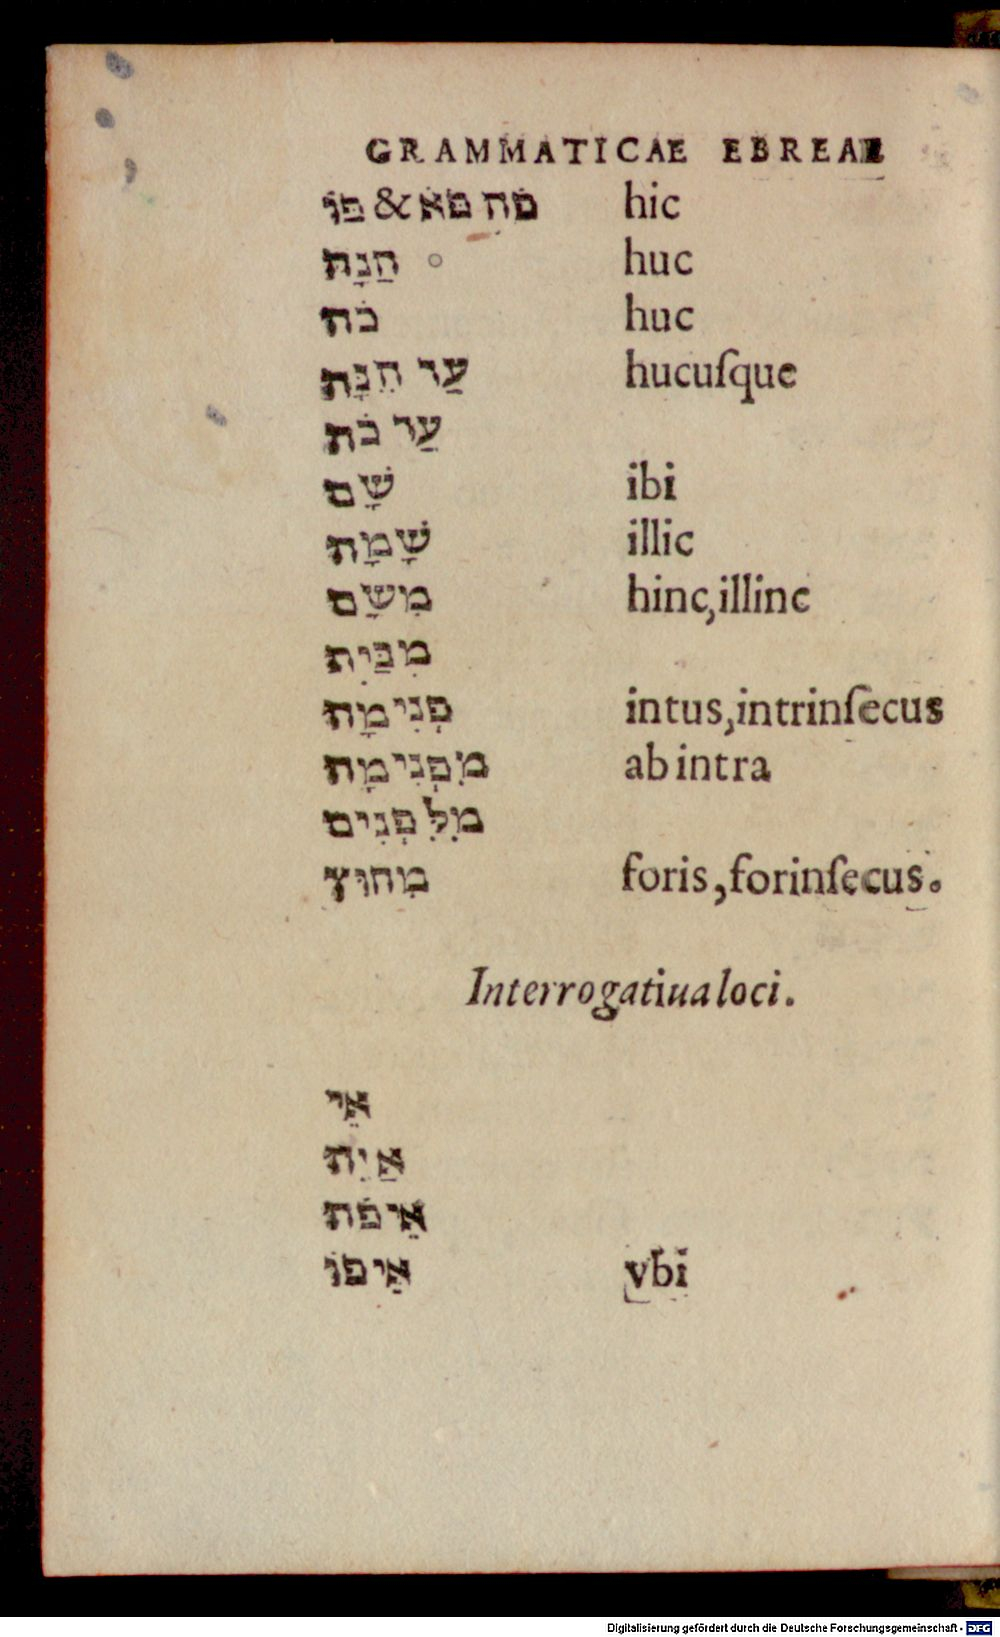 GRAMMATICAE EBREAE
פֹּה פֹּא & פּוֹ hic
הֵנָּה huc
כֹּה huc
עַד הֵנָּה hucuſque
עַד כֹּה
שָׁם ibi
שָׁמָּה illic
מִשָּׁם hinc,illinc
מִבַּיִת
פְּנִימָה intus,intrinſecus
מִפְּנִימָה ab intra
מִלִּפְנִים
מִחוּץ foris,forinſecus.
Interrogatiua loci.
אֵי
אַיֵּה
אֵיפֹה
אֵיפוֹ vbi
Digitalisierung gefördert durch die Deutsche Forschungsgemeinschaft - DFG